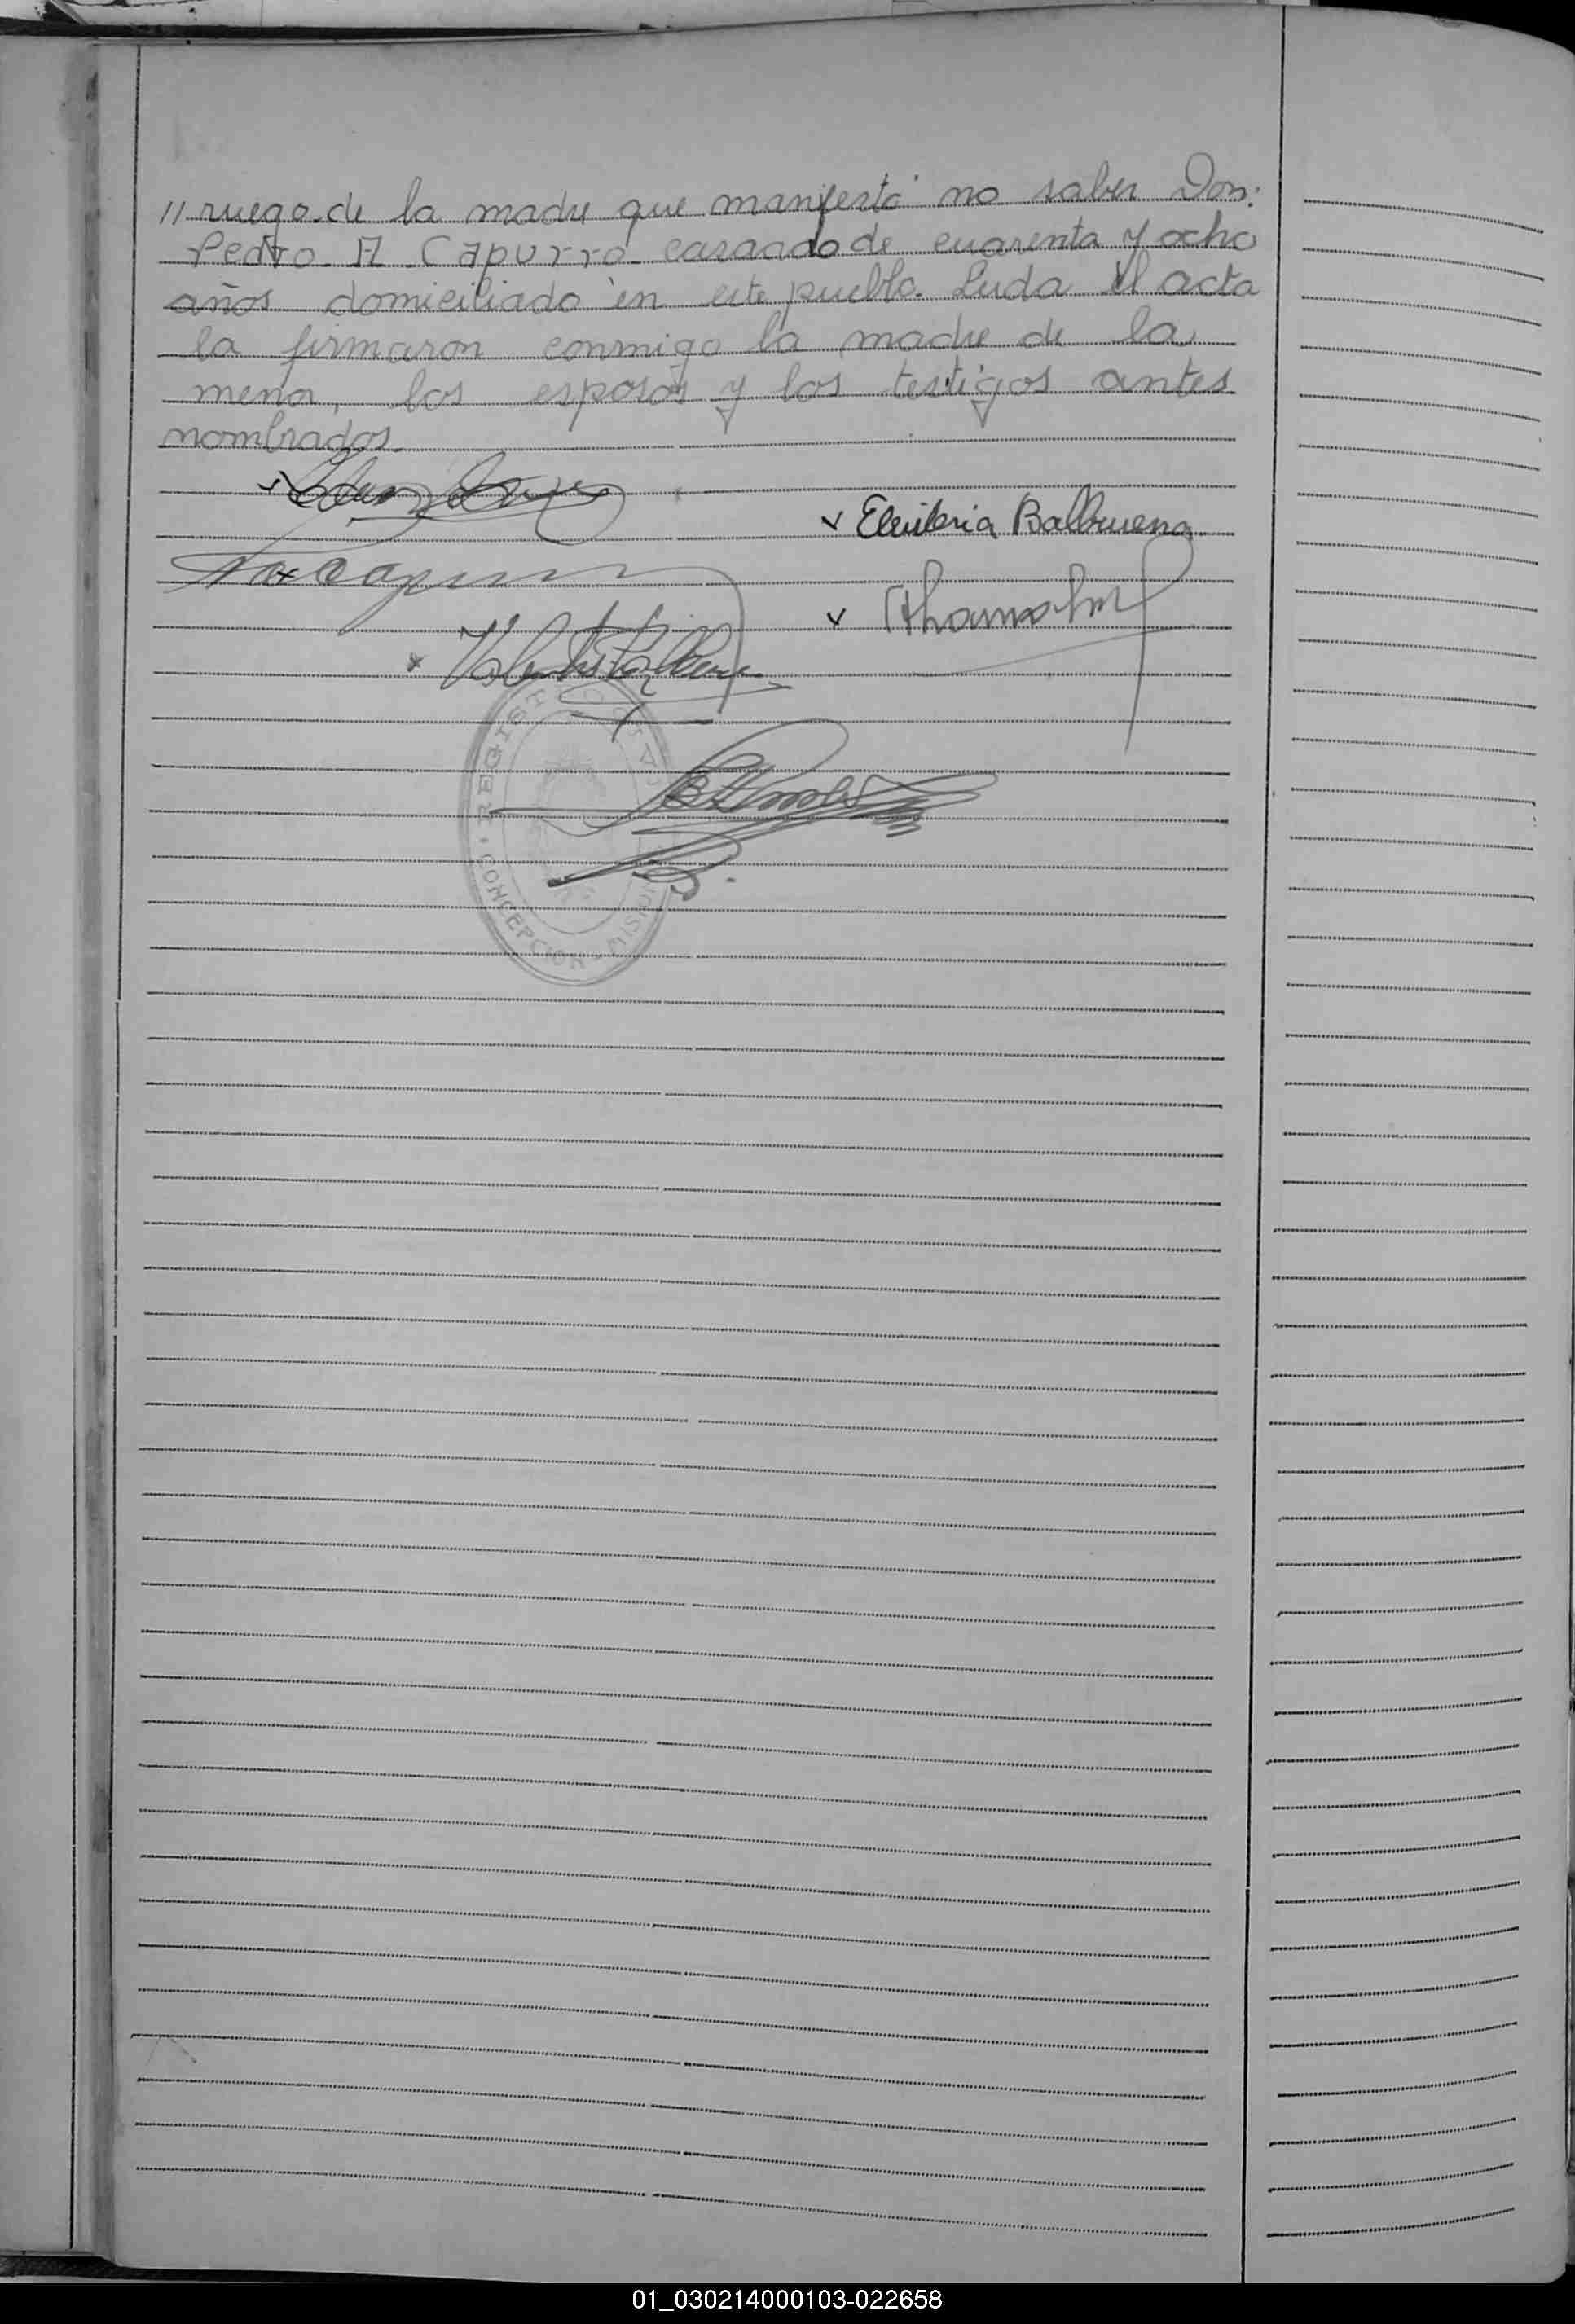 // ruego de la madre que manifestó no saber Don:
Pedro A Capurro casado de cuarenta y ocho
años domiciliado en este pueblo. Leida el acta
la firmaron conmigo la madre de la
menor, los esposos y los testigos antes
nombrados.
Eleuteria Balbuena
REGISTRO CIVIL
CONCEPCION - MISIONES
01_030214000103-022658